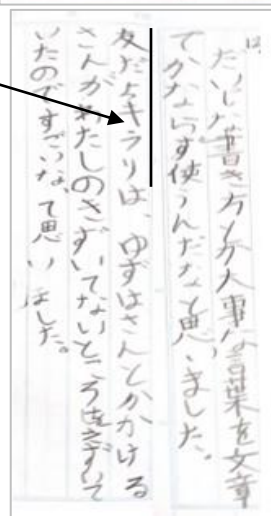 たいじな書き方とか大事な言葉を文章
でかならず使うんだなと思いました。
友だちキラリは、ゆずはさんとかける
さんがわたしのきずいてないところをきずいて
いたのですごいな、て思いました。